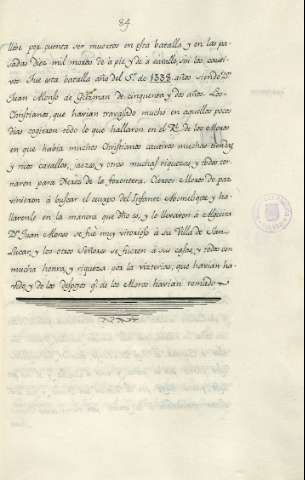 84
por cuenta ser muertos en esta batalla y en las pa-
sadas diez mil moros de a pie y de a cavallo, sin los cauti-
vos. Fue esta batalla año del S.r de 1338 años siendo D.n
Juan Alonso de Guzman de cinquenta y dos años. Los
Christianos, que havian travajado mucho en aquellos pocos
dias cogieron todo lo que hallaron en el R.l de los Moros
en que havia muchos Christianos cautivos muchas tiendas
y ricos cavallos, jaezes, y otras muchas riquezas y todos tor-
naron para Xerez de la frontera. Ciertos Moros de
vinieron à buscar el cuerpo del Infante Abomelique y ha-
llaronlo en la manera que dho es, y lo llevaron à Algecira
D.n Juan Alonso se fue muy vitorioso à su Villa de San-
Lucar, y los otros Señores se fueron à sus casas, y todos con
mucha honra, y riqueza por la victoria, que havian ha-
vido, y de los despojos q.e de los Moros havian tomado